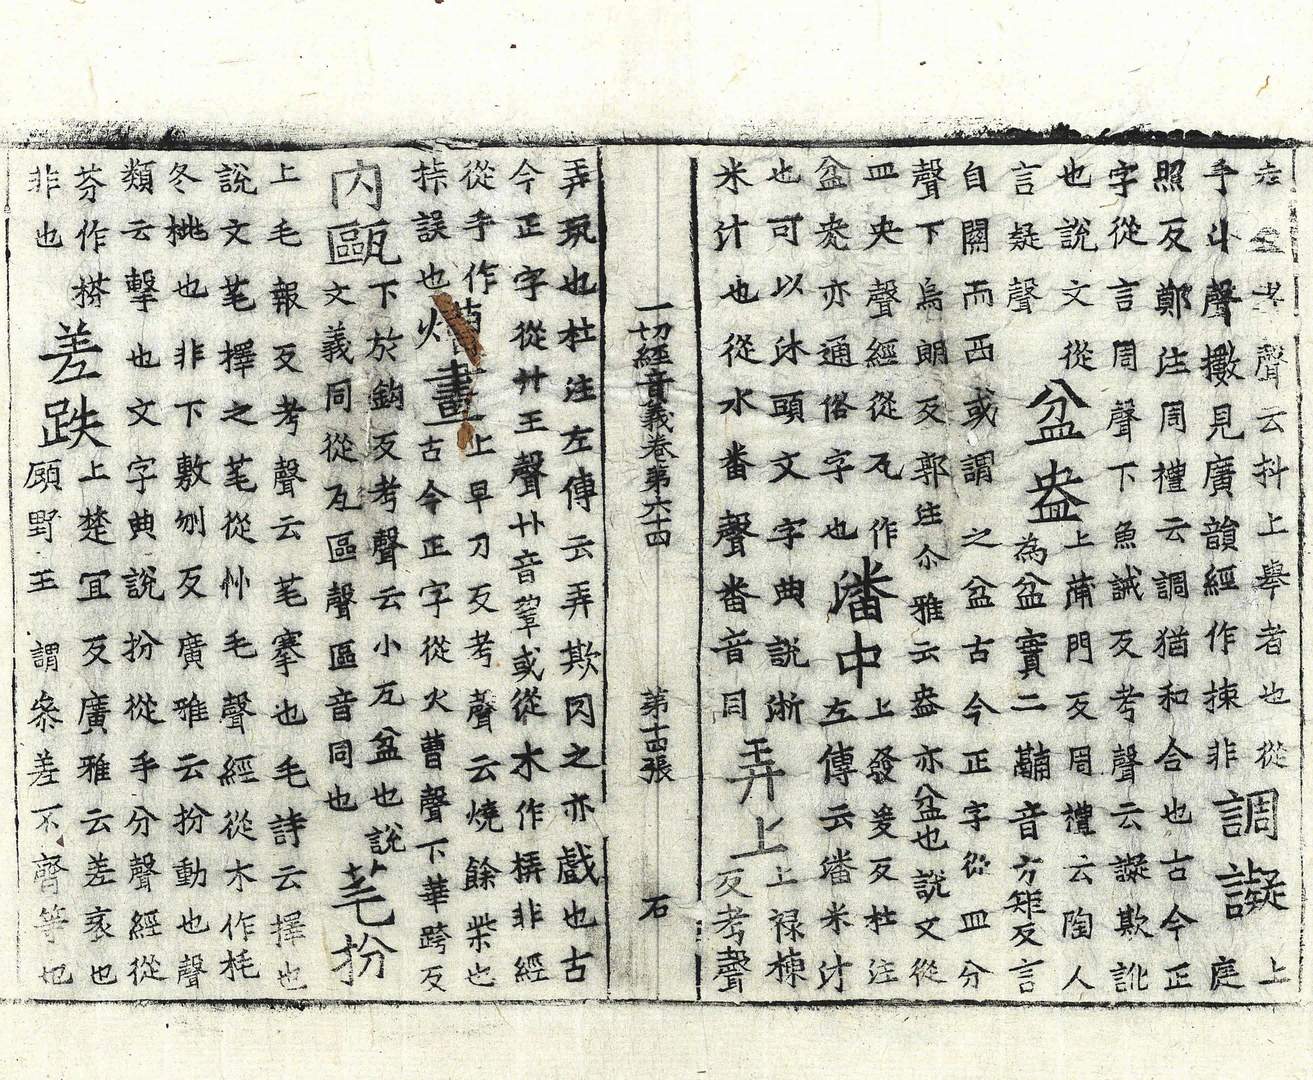 聲云抖上舉者也從
手斗聲擻見廣韻經作揀非
調譺
上
庭
照反鄭注周禮云調猶和合也古今正
字從言周聲下魚誡反考聲云譺欺訛
也說文從
言疑聲
盆盎
上蒲門反周禮云陶人
為盆實二鬴音方矩反言
自關而西或謂之盆古今正字從皿分
聲下烏朗反郭注尒雅云盎亦盆也說文從
皿央聲經從瓦作
盆㼜亦通俗字也
潘中
上發爰反杜注
左傳云潘米汁
也可以沐頭文字典說淅
米汁也從水番聲番音同
弄上
上祿棟
反考聲
一切經音義卷第六十四 第十四張 石
弄玩也杜注左傳云弄欺罔之亦戲也古
今正字從廾王聲廾音鞏或從木作梇非經
從手作
挊誤也
畫
上早刀反考聲云燒餘柴也
古今正字從火曹聲下華跨反
內甌
下於鉤反考聲云小瓦盆也說
文義同從瓦區聲區音同也
芼扮
上毛報反考聲云芼搴也毛詩云擇也
說文芼擇之芼從艸毛聲經從木作枆
冬桃也非下敷刎反廣雅云扮動也聲
類云擊也文字典說扮從手分聲經從
芬作搽
非也
差跌
上楚宜反廣雅云差衺也
顧野王謂參差不齊等也